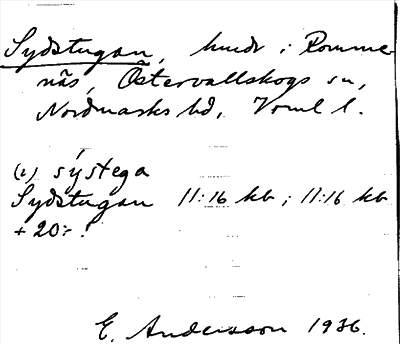 Sydstugan, hmdr i Romme-
näs, Östervallskogs sn,
Nordmarks hd, Vrml l.
(i) sýstega
Sydstugan 11:16 kb; 11:16 kb
+ 20:- !
E. Andersson 1936.